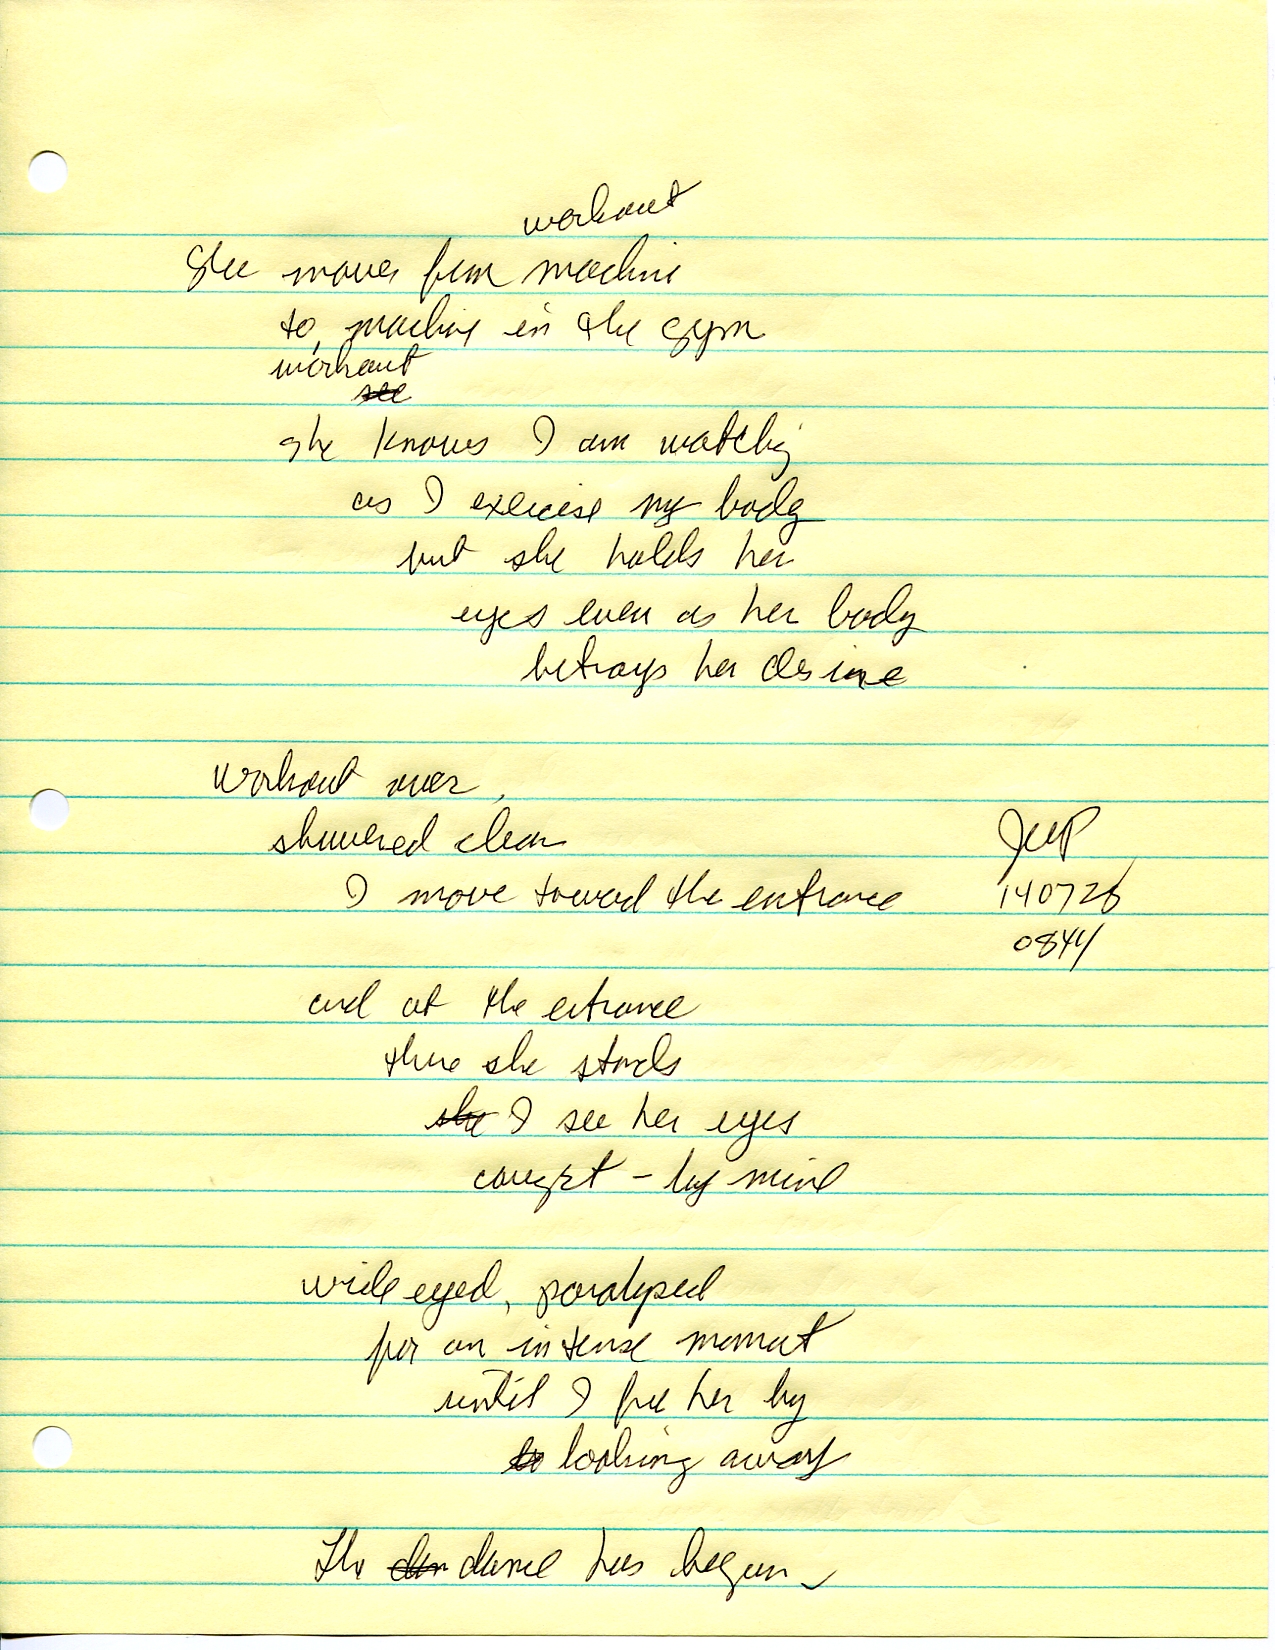 workout
She moves from machine
to machine in the gym
workout
see
she knows I am watching
as I exercise my body
but she holds her
eyes even as her body
betrays her desire
workout over,
showered clean
I move toward the entrance
JWP
140726
0844
and at the entrance
there she stands
she I see her eyes
caught - by mine
wide eyed, paralyzed
for an intense moment
until I free her by
lo looking away
The dan dance has begun